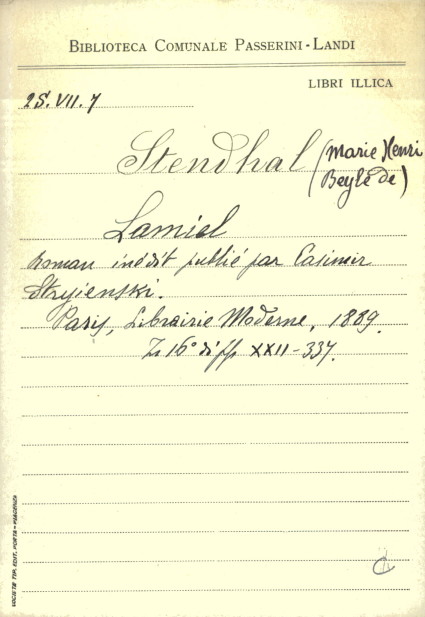 BIBLIOTECA COMUNALE PASSERINI-LANDI
LIBRI ILLICA
2S.VII.7
Stendhal (Marie Henri
Beyle de)
Lamiel
Roman inédit publié par Casimir
Stryienski.
Paris, Librairie Moderne, 1889.
In 16° di pp XXII-337.
SOCIETÀ TIP. EDIT. PORTA-PIACENZA